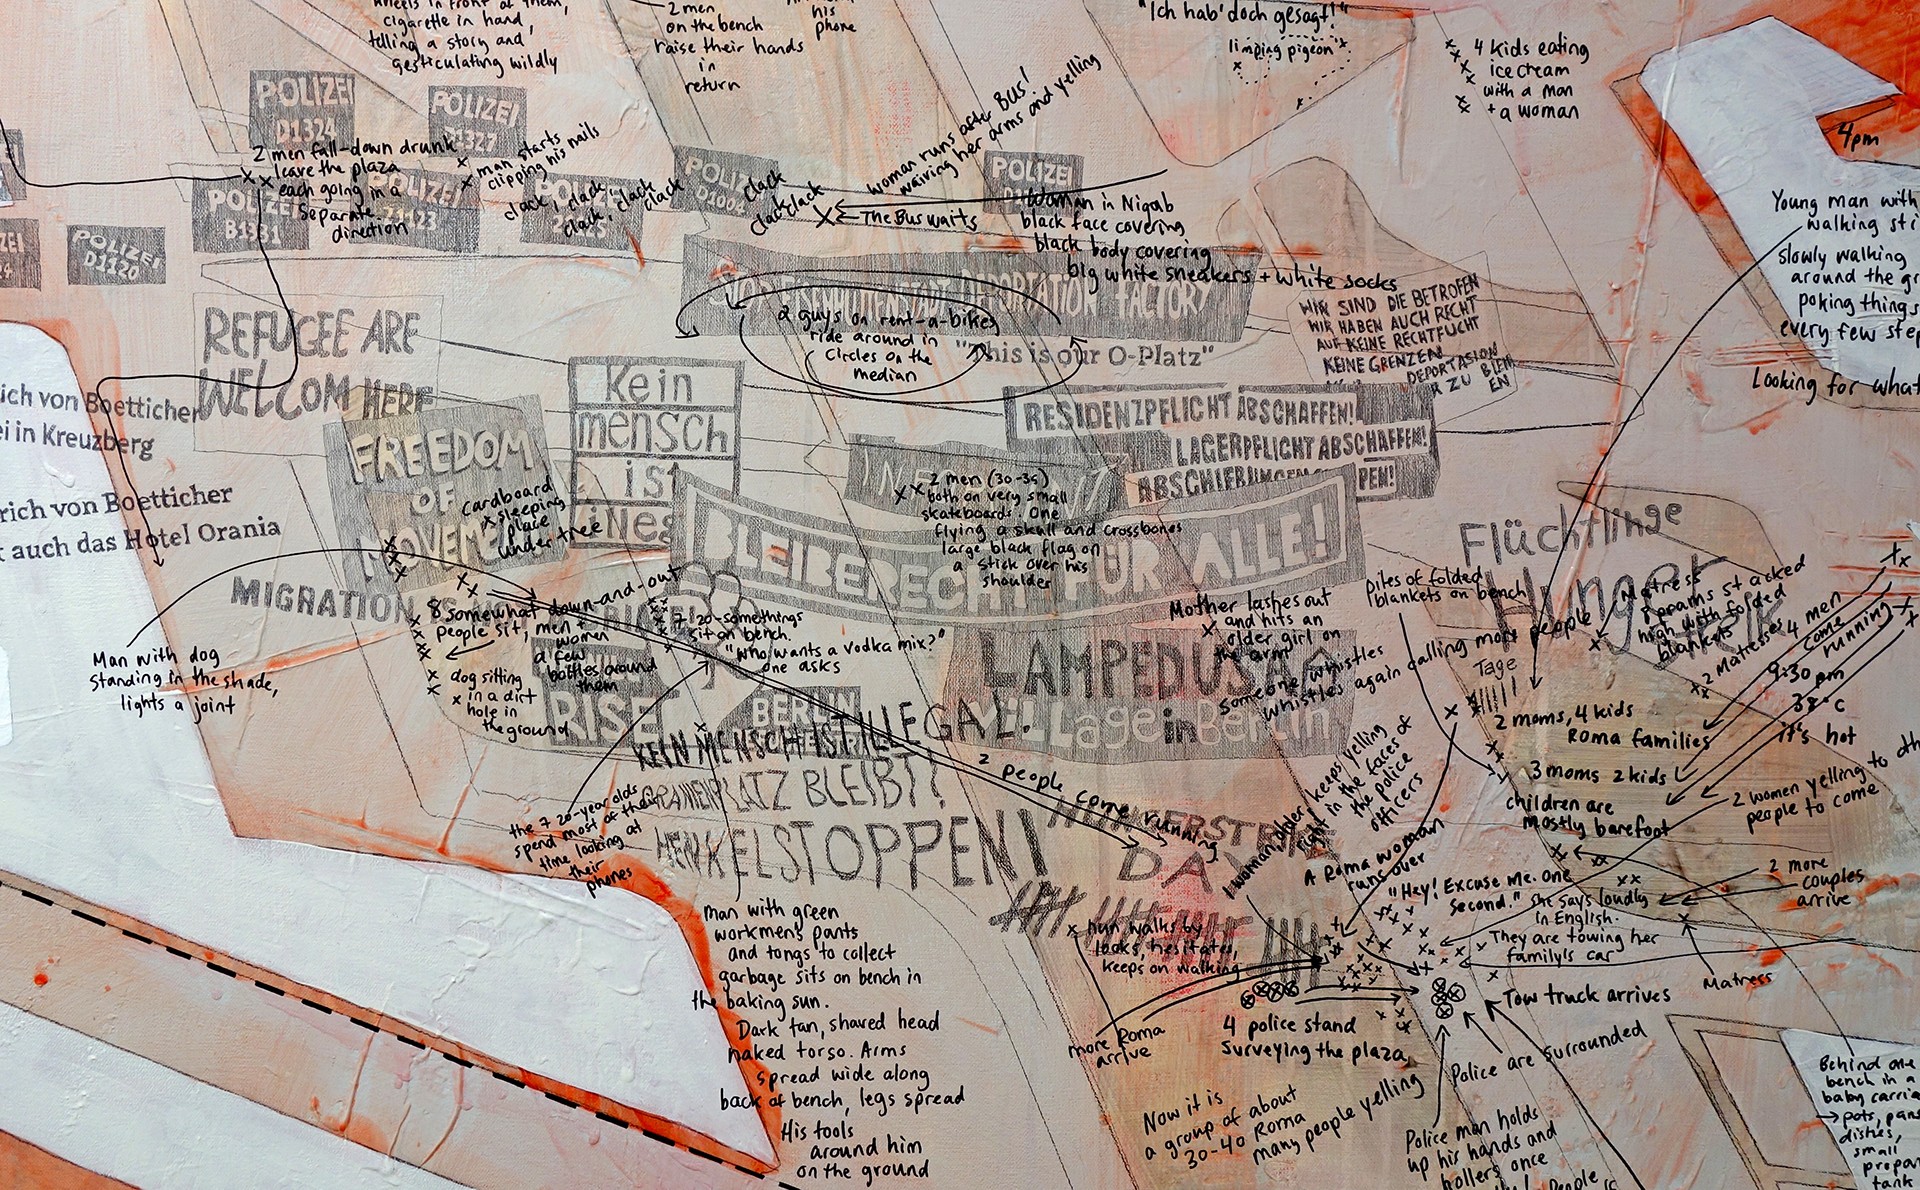 wheels in front of them,
cigarette in hand,
telling a story and
gesticulating wildly
2 men
on the bench
raise their hands
in
return
his
phone
"Ich hab' doch gesagt!"
limping pigeon
4 kids eating
ice cream
with a man
+ a woman
4pm
POLIZEI
D1324
POLIZEI
D1327
2 men fall-down drunk
leave the plaza
each going in a
separate
direction
man starts
clipping his nails
clack, clack
clack, clack
clack, clack
clack
clack
clack clack
POLIZEI
D1004
POLIZEI
POLIZEI
B1331
POLIZEI
POLIZEI
POLIZEI
D1120
woman runs after BUS!
waiving her arms and yelling
The Bus waits
Woman in Niqab
black face covering
black body covering
big white sneakers + white socks
STOP EISENHÜTTENSTADT DEPORTATION FACTORY
2 guys on rent-a-bikes
ride around in
circles on the
median
"This is our O-Platz"
WIR SIND DIE BETROFEN
WIR HABEN AUCH RECHT
AUF KEINE RECHTFLUCHT
KEINE GRENZEN
DEPORTASION
ZU BLEIB
EN
Young man with
walking sti
slowly walking
around the gr
poking things
every few step
Looking for what
REFUGEE ARE
WELCOM HERE
ich von Boetticher
ei in Kreuzberg
rich von Boetticher
auch das Hotel Orania
FREEDOM
OF
MOVEME
cardboard
sleeping
place
under tree
Kein
mensch
ist
illeg
RESIDENZPFLICHT ABSCHAFFEN!
LAGERPFLICHT ABSCHAFFEN!
ABSCHIEBUNGEN PEN!
2 men (30-35)
both on very small
skateboards. One
flying a skull and crossbones
large black flag on
a stick over his
shoulder
BLEIBERECHT FÜR ALLE!
Flüchtlinge
Hunger
Streik
Tage
MIGRATION IS
Man with dog
standing in the shade,
lights a joint
8 somewhat down-and-out
people sit, men +
women
a few
bottles around
them
dog sitting
in a dirt
hole in
the ground
7 20-somethings
sit on bench.
"Who wants a vodka mix?"
one asks
RISE
BERLIN
Mother lashes out
and hits an
older girl on
the arm
Piles of folded
blankets on bench
LAMPEDUSA
Village in Berlin
Someone whistles
whistles again calling more people
Matress
Prams stacked
high with folded
blankets
2 Matresses
4 men
come
running
9:30 pm
38°C
it's hot
2 moms, 4 kids
Roma families
3 moms 2 kids
children are
mostly barefoot
2 women yelling to oth
people to come
KEIN MENSCH IST ILLEGAL!
ORANIENPLATZ BLEIBT!
HENKELSTOPPEN!
2 people come running
the 7 20-year olds
spend most of their
time looking at
their
phones
HUNGERSTRIKE
DAY
1 woman, older, keeps yelling
right in the faces of
the police
officers
A Roma woman
runs over
"Hey! Excuse me. One
second." She says loudly
in English.
They are towing her
family's car
2 more
couples
arrive
Matress
Nun walks by
looks, hesitates,
keeps on walking
more Roma
arrive
4 police stand
surveying the plaza
Tow truck arrives
Police are surrounded
man with green
workmen's pants
and tongs to collect
garbage sits on bench in
the baking sun.
Dark tan, shaved head
naked torso. Arms
spread wide along
back of bench, legs spread
His tools
around him
on the ground
Now it is
a group of about
30-40 Roma
many people yelling
Police man holds
up his hands and
hollers once
Behind one
bench in a
baby carria
pots, pans
dishes,
small
propan
tank